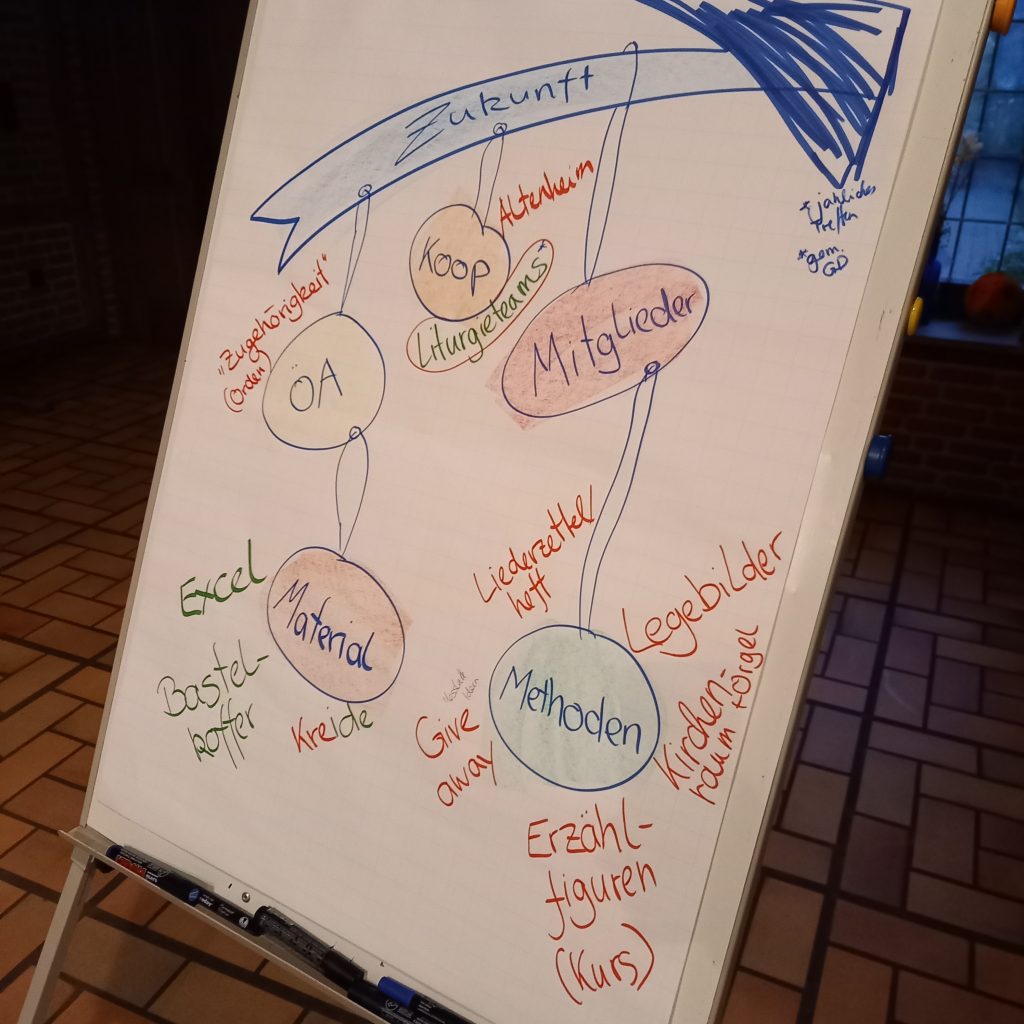 Zukunft
* jährliches
Treffen
* gem.
GD
Altenheim
Koop
"Liturgieteams"
Mitglieder
"Zugehörigkeit"
(Orden)
ÖA
Excel
Material
Bastel-
koffer
Kreide
Liederzettel/
heft
Legebilder
Methoden
Give
away
Kirchen-
raum + orgel
Erzähl-
figuren
(Kurs)